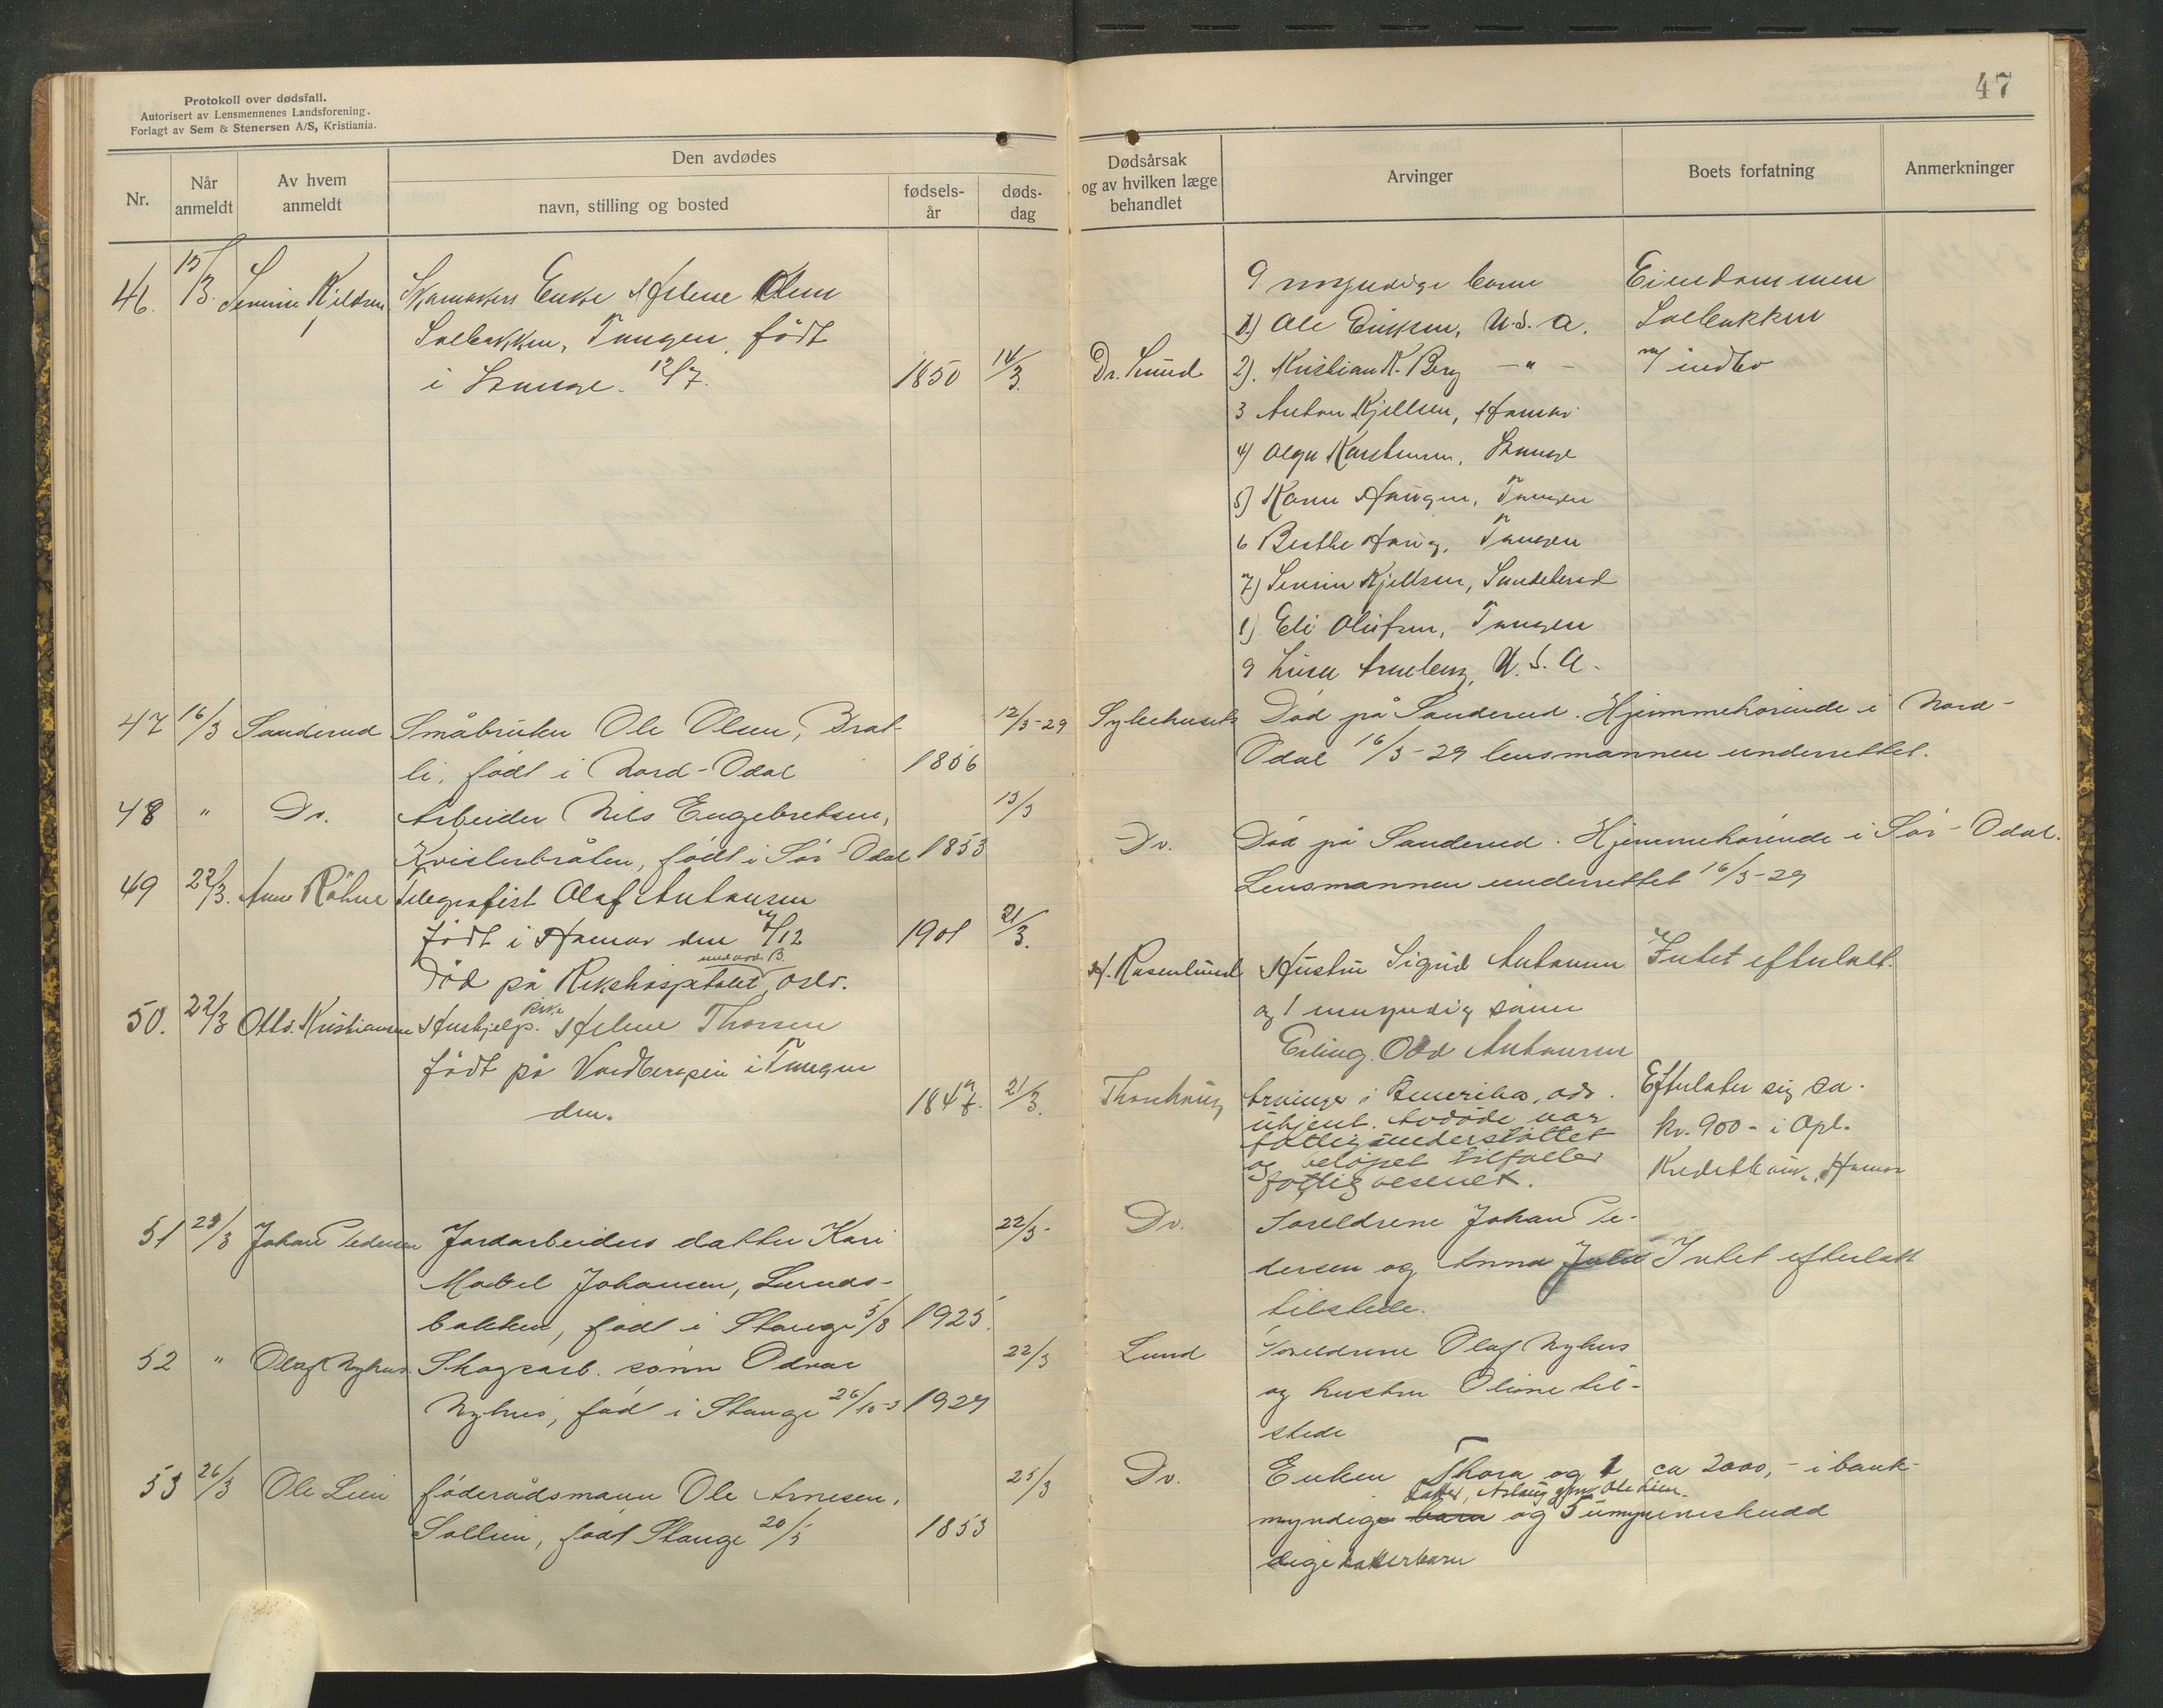 Protokoll over dødsfall.
Autorisert av Lensmennenes Landsforening.
Forlagt av Sem & Stenersen A/S, Kristiania.
47
Nr.
Når anmeldt
Av hvem anmeldt
Den avdødes
navn, stilling og bosted
fødsels-år
døds-dag
Dødsårsak og av hvilken læge behandlet
Arvinger
Boets forfatning
Anmerkninger
46. 15/3. Severin Kjeldsen Skomakers Enke Helene Olsen
Solbakken, Tangen, født
i Stange. 12/7. 1850 14/3.
Dr. Lund
9 myndige barn
1) Ole Eriksen, U.S.A.
2). Kristian K. Berg — " —
3 Anton Kjellsen, Hamar
4) Olga Karstensen, Stange
5) Karen Haugen, Tangen
6 Berthe Haug, Tangen
7) Severin Kjellsen,
8) Eli Olufsen, Tangen
9 Lina U.S.A.
Eiendommen
Solbakken
m/ indbo
47 16/3 Sanderud Småbruker Ole Olsen, Brat-
li, født i Nord-Odal 1856 12/3-29
Sykehusets Død på Sanderud. Hjemmehørende i Nord-
Odal 16/3-29 lensmannen underrettet.
48 " Do. Arbeider Nils Engebretsen, 13/3
Kvisterbråten, født i Sør-Odal 1853
Do. Død på Sanderud. Hjemmehørende i Sør-Odal.
Lensmannen underrettet 16/3-29
49 22/3. Anne Röhne Telegrafist Olaf Antonsen
født i Hamar den /12 1901 21/3.
med avd. B.
Død på Rikshospitalet, Oslo.
H. Rosenlund Hustru Sigrid Antonsen
og 1 umyndig sønn
Erling Odd Antonsen
Intet efterlatt.
50. 22/3 Otto. Kristiansen Hushjelp. pike Helene Thorsen
født på Vardbergsein i Tangen
den. 1847. 21/3.
Thorshaug Arvinger i Amerika, adr.
ukjent. Avdøde var
fattigunderstøttet
og beløpet tilfaller
fattigvesenet.
Efterlater sig ca.
kr. 900 - i Opl.
Kreditbank, Hamar
51 23/3 Johan Pedersen Jordarbeiders datter Kari 22/3-
Mabel Johansen, Lunds-
bakken, født i Stange 5/8 1925.
Do. Foreldrene Johan Pe-
dersen og Anna Julie
tilstede.
Intet efterlatt
52 " Olaf Nyhus. Skogsarb. sønn Odvar 22/3
Nyhus, født i Stange 26/10- 1927
Lund Foreldrene Olaf Nyhus
og hustru Oline til-
stede
53 26/3 Ole Lien føderådsmann Ole Arnesen, 25/3
Sollien, født Stange 20/5 1853
Do. Enken Thora og 1
datter, Aslaug g.m. Ole Lien.
myndige barn og 5 umyn-
dige datterbarn
ca 2000,- i bank-
innskudd